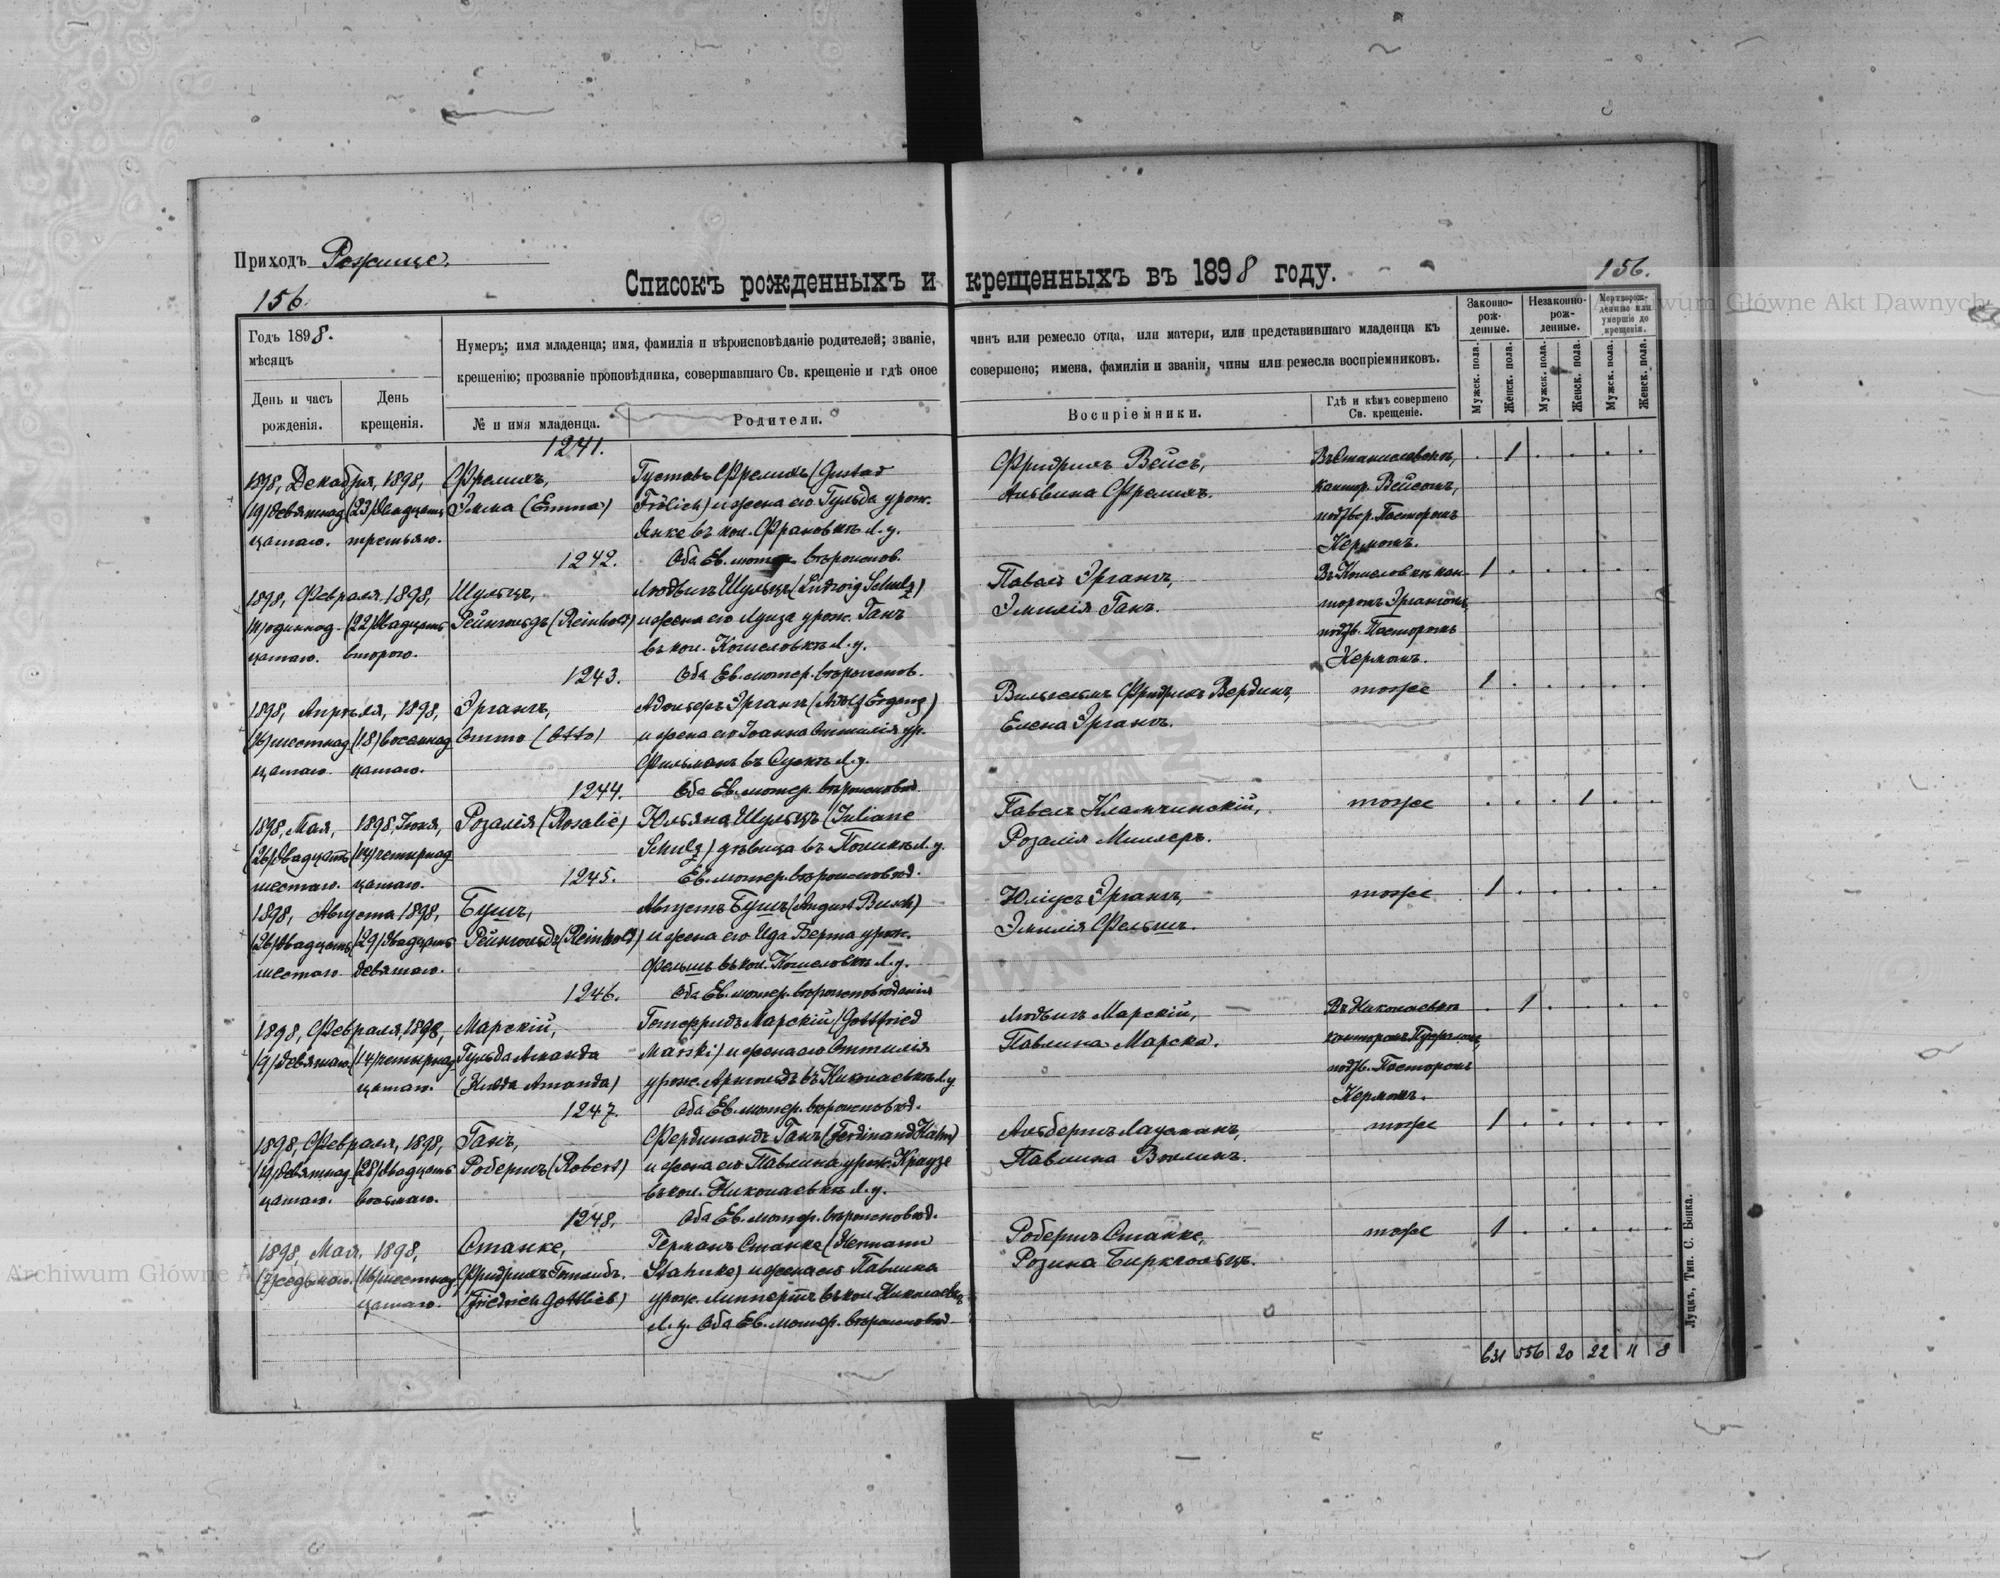 Приходъ Рожище.
156.
156.
Списокъ рожденныхъ и крещенныхъ въ 1898 году.
Годъ 1898.
мѣсяцъ
День и часъ рожденія.
День крещенія.
Нумеръ; имя младенца; имя, фамилія и вѣроисповѣданіе родителей; званіе, чинъ или ремесло отца, или матери, или представившаго младенца къ
крещенію; прозваніе проповѣдника, совершавшаго Св. крещеніе и гдѣ оное совершено; имена, фамиліи и званія, чины или ремесла воспріемниковъ.
№ и имя младенца.
Родители.
Воспріемники.
Гдѣ и кѣмъ совершено Св. крещеніе.
Законно-рож-денные.
Незаконно-рож-денные.
Мертворож-денные или умершіе до крещенія.
Мужск. пола.
Женск. пола.
Мужск. пола.
Женск. пола.
Мужск. пола.
Женск. пола.
1241.
1898, Декабря, 1898, Фрелихъ, Густавъ Фрелихъ (Gustav Фридрихъ Вейсъ, 1
(19) девятнад (23) двадцать Эмма (Emma) Frölich) и жена его Гульда урож. Альвина Фрелихъ. кантор. Вейсомъ,
цатаго. третьяго. Янке въ кол. Л.у. подтвер. Пасторомъ
Керномъ.
1242. Оба Ев. лютер. вѣроиспов.
1898, Февраля, 1898, Шульцъ, Людвигъ Шульцъ (Ludwig Schulz) Павелъ Эргангъ, 1
(11) одиннад (22) двадцать Рейнгольдъ (Reinhold) и жена его Луиза урож. Ганъ Эмилія Ганъ.
цатаго. второго. въ кол. Кошеловкѣ Л.у. подтв. Пасторомъ
Керномъ.
1243. Оба Ев. лютер. вѣроиспов.
1898, Апрѣля, 1898, Эргангъ, Адольфъ Эргангъ (Adolf Ergang) Вильгельмъ Фридрихъ Вердинъ, тоже 1
(16) шестнад (18) восемнад Отто (Otto) и жена его Іоанна Оттилія ур. Елена Эргангъ.
цатаго. цатаго. Фильманъ въ Л.у.
1244. Оба Ев. лютер. вѣроисповѣд.
1898, Мая, 1898, Іюня, Розалія (Rosalie) Юльяна Шульцъ (Juliane Павелъ тоже 1
(26) двадцать (14) четырнад Schulz) дѣвица въ Л.у. Розалія Миллеръ.
шестаго. цатаго.
1245. Ев. лютер. вѣроисповѣд.
1898, Августа 1898, Бушъ, Августъ Бушъ (August Busch) Юліусъ Эргангъ, тоже 1
(26) двадцать (29) двадцать Рейнгольдъ (Reinhold) и жена его Ида Берта урож. Эмилія Фельшъ.
шестаго девятаго. Фельшъ въ кол. Кошеловкѣ Л.у.
1246. Оба Ев. лютер. вѣроисповѣданія
1898, Февраля, 1898, Марскій, Готфридъ Марскій (Gottfried Людвигъ Марскій, Въ Николаевкѣ 1
(9) девятаго (14) четырнад Гульда Аманда Marski) и жена его Оттилія Павлина Марска.
цатаго. (Hulda Amanda) урож. Арнольдъ въ Николаевкѣ Л.у. подтв. Пасторомъ
Керномъ.
1247. Оба Ев. лютер. вѣроисповѣд.
1898, Февраля, 1898, Ганъ, Фердинандъ Ганъ (Ferdinand Hahn) Альбертъ Лауманъ, тоже 1
(19) девятнад (28) двадцать Робертъ (Robert) и жена его Павлина урож. Краузе Павлина
цатаго. восьмаго. въ кол. Николаевкѣ Л.у.
1248. Оба Ев. лютер. вѣроисповѣд.
1898, Мая, 1898, Станке, Германъ Станке (Hermann Робертъ Станке, тоже 1
(7) седьмаго. (16) шестнад Фридрихъ Готлибъ. Stahnke) и жена его Павлина Розина Биркгольцъ.
цатаго. (Friedrich Gottlieb) урож. Липпертъ въ кол. Николаевкѣ
Л.у. Оба Ев. лютер. вѣроисповѣд.
631 556 20 22 11 8
Луцкъ, Тип. С. Бонка.
Archiwum Główne Akt Dawnych
Archiwum Główne Akt Dawnych